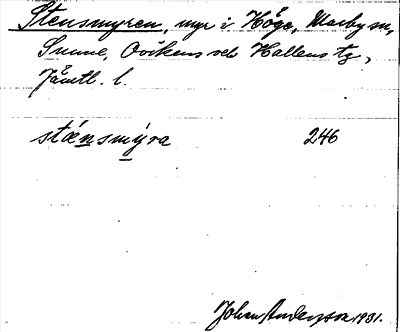 Stensmyren, myr i Höge, Marby sn,
Sunne, Ovikens och Hallens tg,
Jämtl. l.
sténsmýra 246
Johan Anderson 1931.